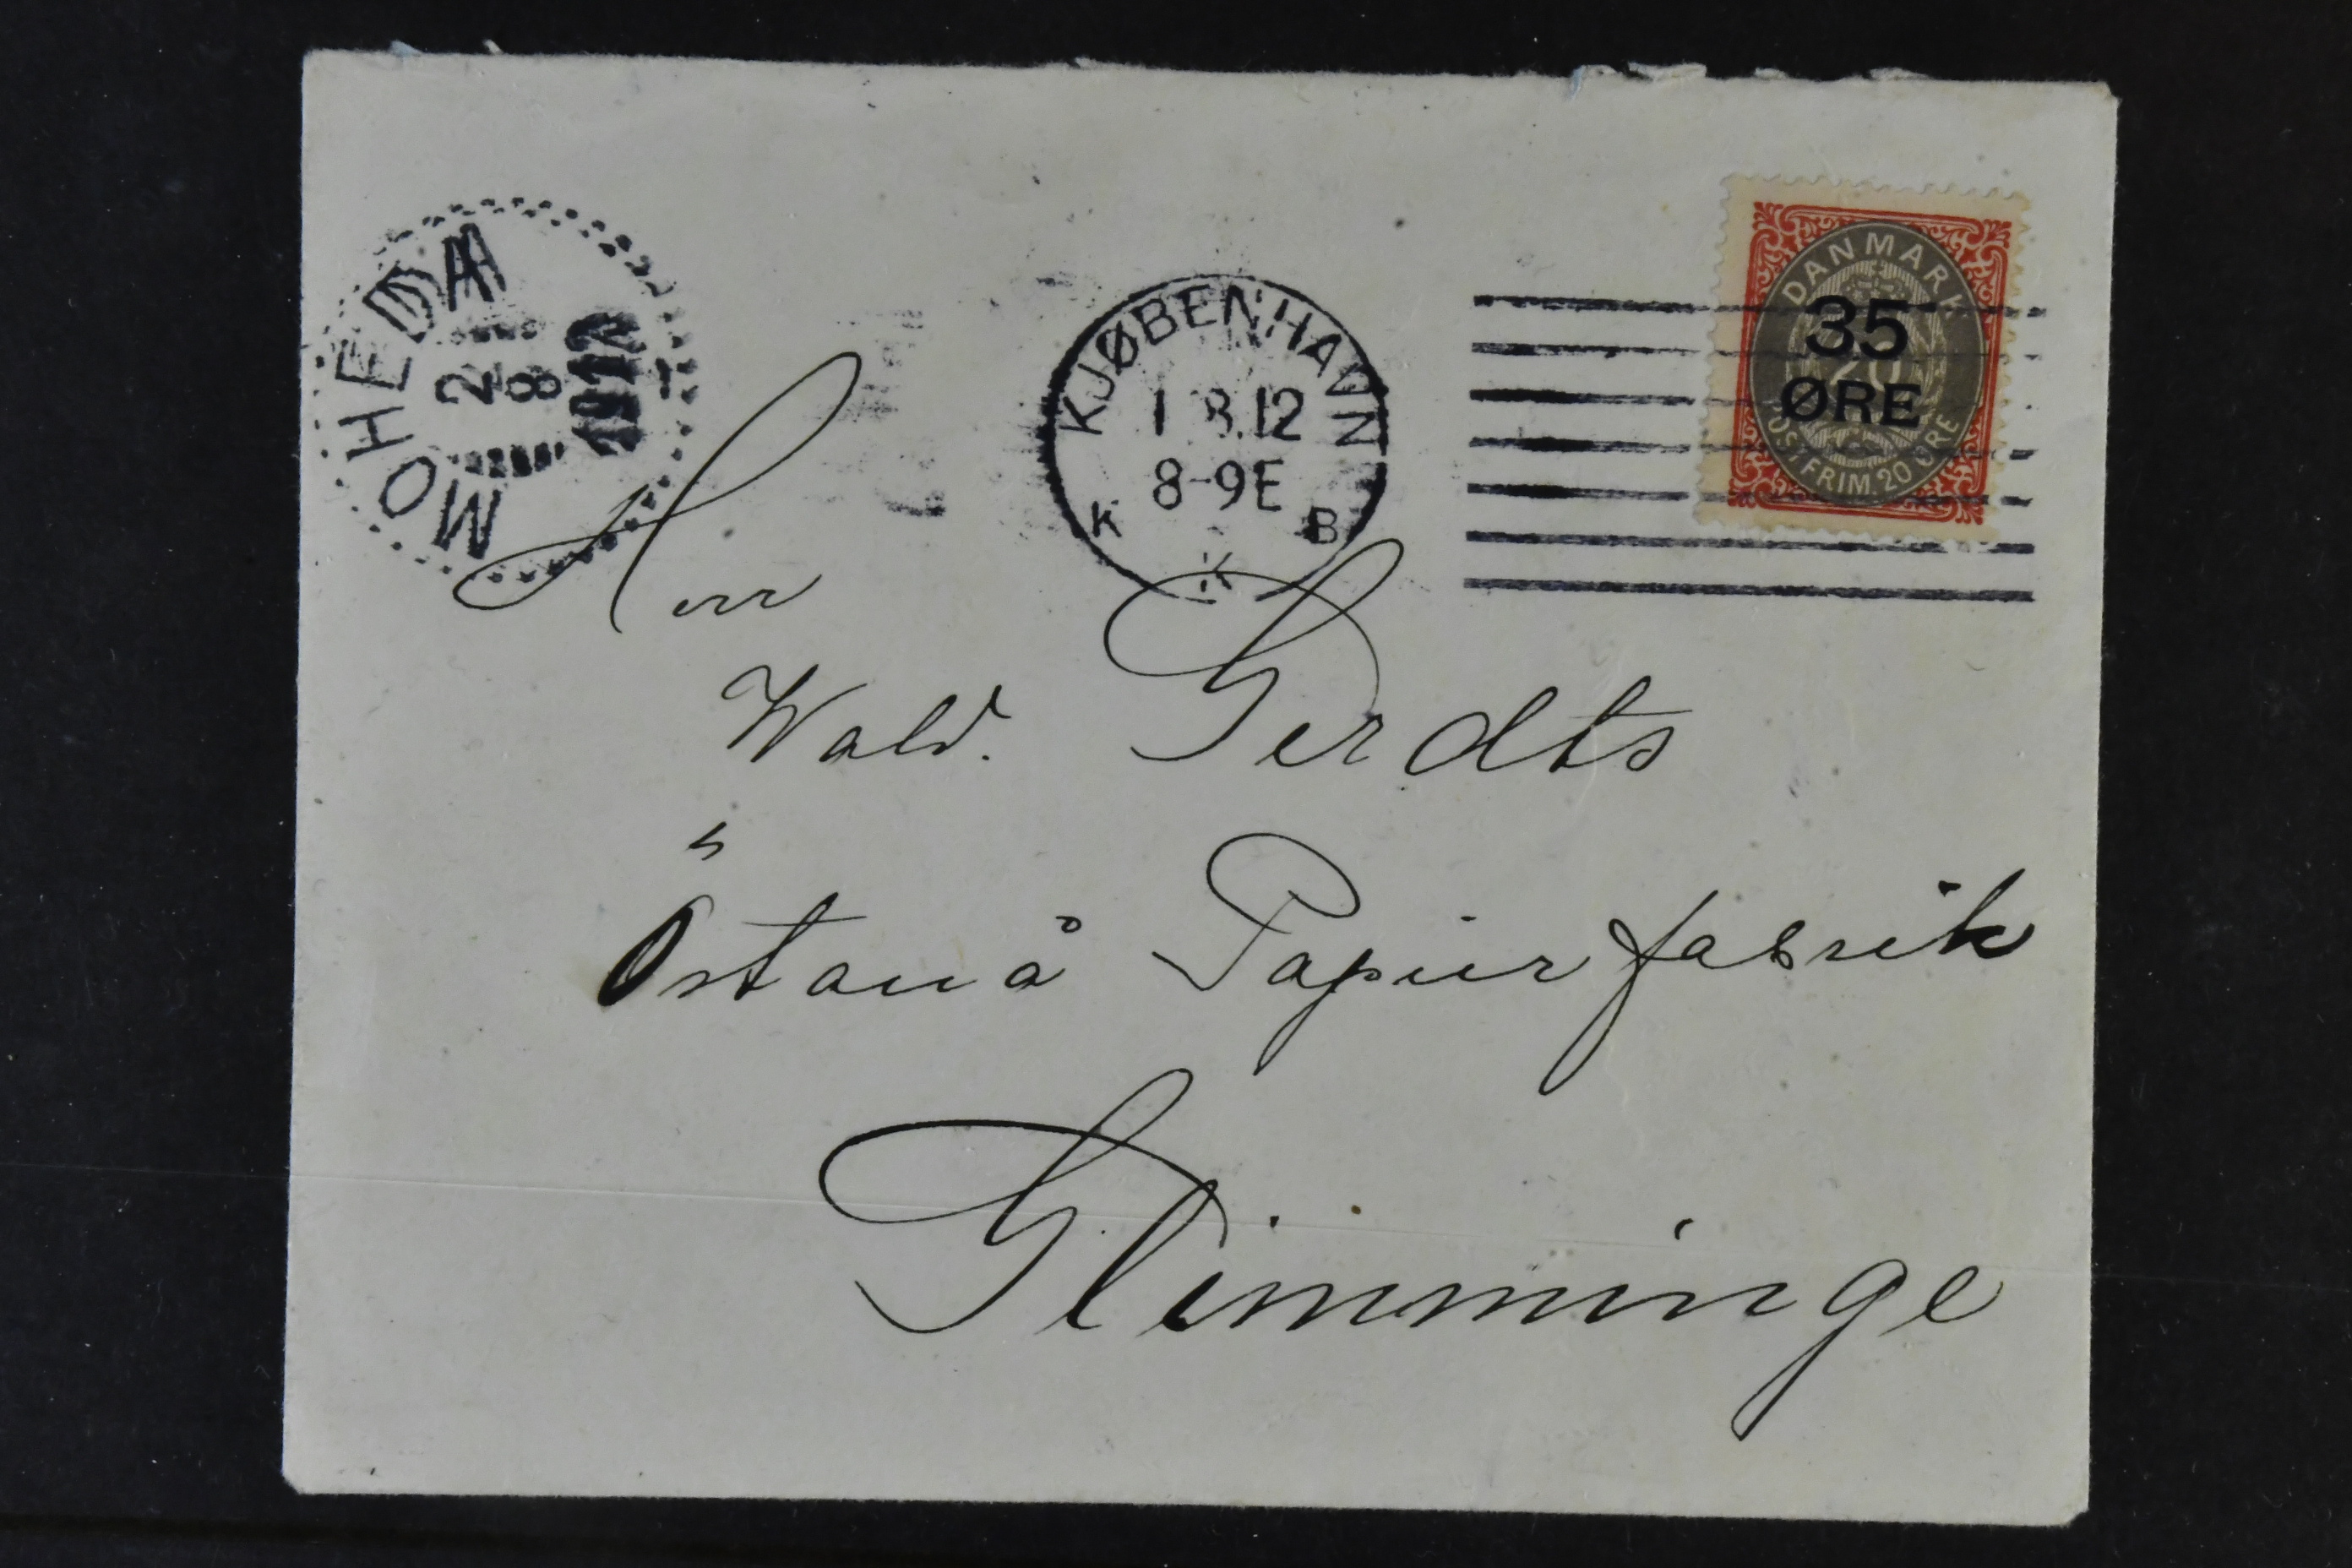 MOHEDA
2
8
1912
KJØBENHAVN
1 8.12
8-9E
K K B
DANMARK
35
20
ØRE
POSTFRIM. 20 ØRE
Herr
Wald. Gerdts
Östanå Papierfabrik
Glimminge